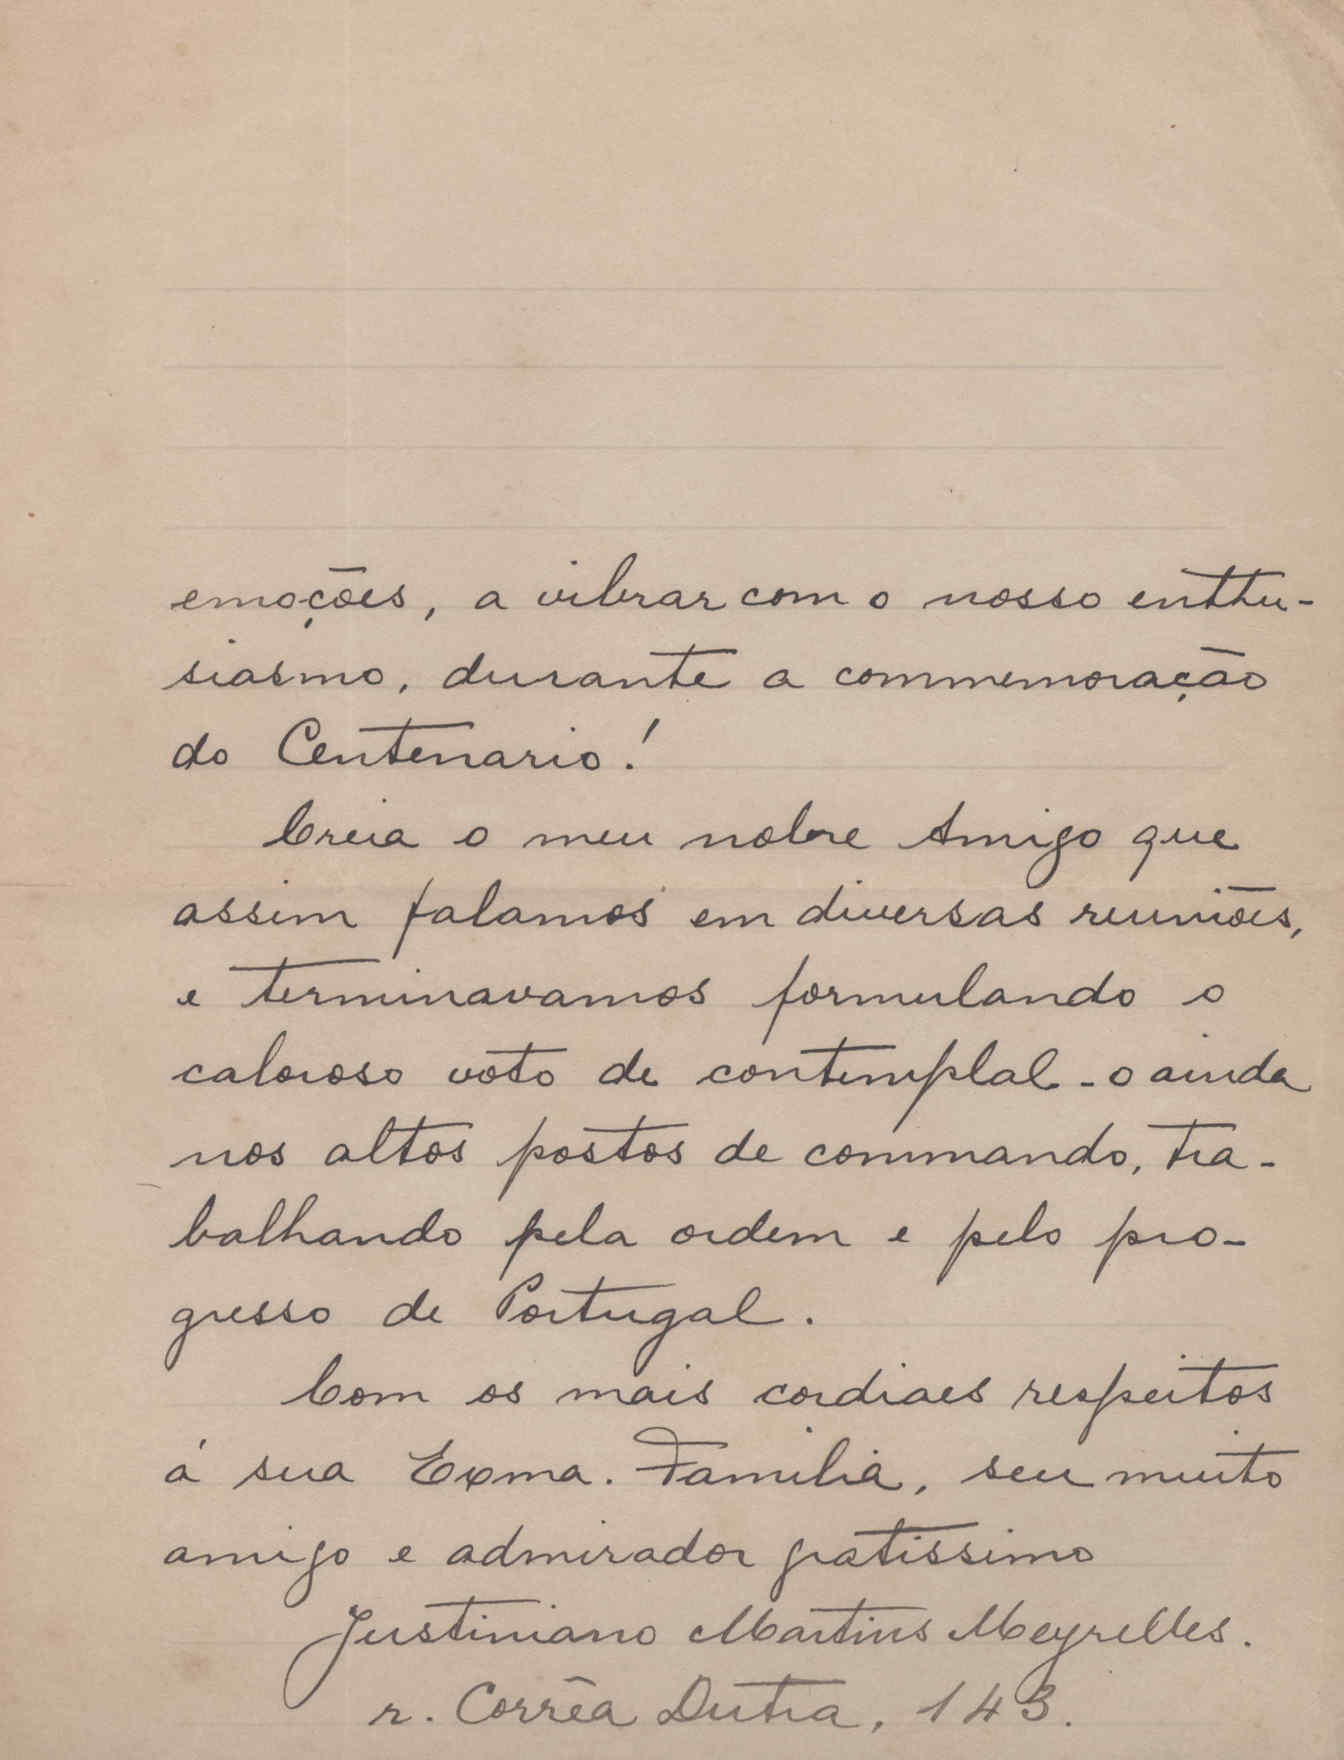 emoções, a vibrar com o nosso enthu-
siasmo, durante a commemoração
do Centenario!
Creia o meu nobre Amigo que
assim falamos em diversas reuniões,
e terminavamos formulando o
caloroso voto de contemplal-o ainda
nos altos postos de commando, tra-
balhando pela ordem e pelo pro-
gresso de Portugal.
Com os mais cordiaes respeitos
á sua Exma. Familia, seu muito
amigo e admirador gratissimo
Justiniano Martins Meyrelles.
r. Corrêa Dutra, 143.